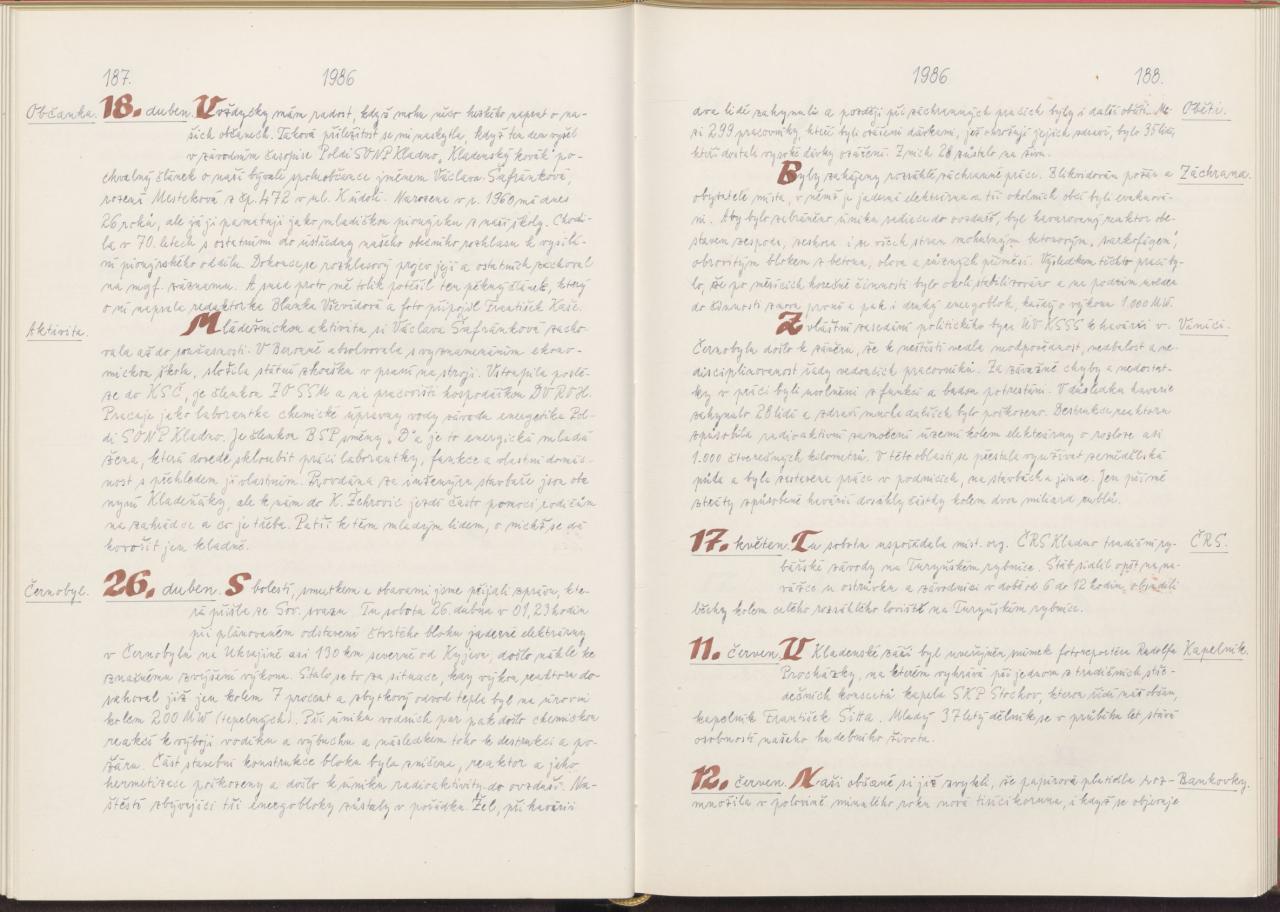 187. 1986
Občanka. 18. duben. Vždycky mám radost, když mohu něco hezkého napsat o na-
šich občanech. Taková příležitost se mi naskytla, když ten den vyšel
v závodním časopise Poldi SONP Kladno „Kladenský kovák" po-
chvalný článek o naší bývalé spoluobčance jménem Václava Šafránková,
rozená Mesteková z čp. 472 v ul. K údolí. Narozena v r. 1960 má dnes
26 roků, ale já ji pamatuji jako mladičkou pionýrku z naší školy. Chodi-
la v 70. letech s ostatními do ústředny našeho obecního rozhlasu k vysílá-
ní pionýrského oddílu. Dokonce se rozhlasový projev její a ostatních zachoval
na mgf. záznamu. A snad proto mě tolik potěšil ten pěkný článek, který
o ní napsala redaktorka Blanka Vševidová a foto připojil František Kaše.
Aktivita Mládežnickou aktivitu si Václava Šafránková zacho-
vala až do současnosti. V Berouně absolvovala s vyznamenáním ekono-
mickou školu, složila státní zkoušku v psaní na stroji. Vstoupila posléze
ze do KSČ, je členkou ZO SSM a na pracovišti hospodářkou DV ROH.
Pracuje jako laborantka chemické úpravny vody závodu energetika Pol-
di SONP Kladno. Je členkou BSP směny „D" a je to energická mladá
žena, která dovede skloubit práci laborantky, funkce a vlastní domác-
nost s přehledem jí vlastním. Provdána za inženýra stavbaře jsou oba
nyní Kladeňáky, ale k nám do K. Žehrovic jezdí často pomoci rodičům
na zahrádce a co je třeba. Patří k těm mladým lidem, o nichž se dá
hovořit jen kladně.
Černobyl. 26. duben. S bolestí, smutkem a obavami jsme přijali zprávu, kte-
rá přišla ze Sov. svazu. Tu sobotu 26. dubna v 01,23 hodin
při plánovaném odstavení čtvrtého bloku jaderné elektrárny
v Černobylu na Ukrajině asi 130 km severně od Kyjeva, došlo náhle ke
značnému zvýšení výkonu. Stalo se to za situace, kdy výkon reaktoru do-
sahoval již jen kolem 7 procent a zbytkový odvod tepla byl na úrovni
kolem 200 MW (tepelných). Při úniku vodních par pak došlo chemickou
reakcí k vývoji vodíku a výbuchu a následkem toho k destrukci a po-
žáru. Část stavební konstrukce bloku byla zničena, reaktor a jeho
hermetizace poškozeny a došlo k úniku radioaktivity do ovzduší. Na-
štěstí zbývající tři energobloky zůstaly v pořádku. Žel, při havárii
1986 188.
dva lidé zahynuli a později při záchranných pracích byly i další oběti. Me- Oběti.
zi 299 pracovníky, kteří byli ozářeni dávkami, jež ohrožují jejich zdraví, bylo 35 lidí,
kteří dostali vysoké dávky ozáření. Z nich 28 zůstalo na živu.
Byly zahájeny rozsáhlé záchranné práce. Zlikvidován požár a Záchrana.
obyvatelé města, v němž je jaderná elektrárna a tří okolních obcí byli evakuová-
ni. Aby bylo zabráněno úniku radiace do ovzduší, byl havarovaný reaktor obe-
staven zespoda, seshora i se všech stran mohutným betonovým „sarkofágem",
obrovitým blokem z betonu, olova a různých příměsí. Výsledkem těchto prací by-
lo, že po měsících horečné činnosti bylo okolí stabilizováno a na podzim uveden
do činnosti znovu první a pak i druhý energoblok, každý o výkonu 1.000 MW.
Zvláštní zasedání politického byra ÚV KSSS k havárii v Viníci.
Černobylu došlo k závěru, že k neštěstí vedla neodpovědnost, nedbalost a ne-
disciplinovanost řady vedoucích pracovníků. Za závažné chyby a nedostat-
ky v práci byli uvolněni z funkcí a budou potrestáni. V důsledku havárie
zahynulo 28 lidí a zdraví mnoha dalších bylo poškozeno. Destrukce reaktoru
způsobila radioaktivní zamoření území kolem elektrárny o rozloze asi
1.000 čtverečných kilometrů. V této oblasti se přestala využívat zemědělská
půda a byla zastavena práce v podnicích, na stavbách a jinde. Jen přímé
ztráty způsobené havárií dosáhly částky kolem dvou miliard rublů.
17. květen. Tu sobotu uspořádala míst. org. ČRS Kladno tradiční ry- ČRS.
bářské závody na Turyňském rybníce. Štáb sídlil opět na na-
vážce u ostrůvku a závodníci v době od 6 do 12 hodin, obsadili
břehy kolem celého rozsáhlého loviště na Turyňském rybníce.
11. červen. V Kladenské záři byl uveřejněn snímek fotoreportéra Rudolfa Kapelník.
Procházky, na kterém vyhrává při jednom z tradičních stře-
dečních koncertů kapela SKP Stochov, kterou řídí náš občan,
kapelník František Sitta. Mladý 37 letý dělník se v průběhu let, stává
osobností našeho hudebního života.
12. červen. Naši občané si již zvykli, že papírová platidla roz- Bankovky.
množila v polovině minulého roku nová tisícikoruna, i když se objevuje